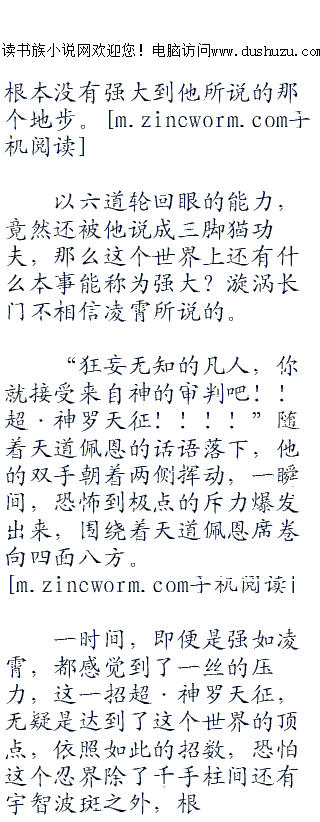 读书族小说网欢迎您! 电脑访问www.dushuzu.com
根本没有强大到他所说的那
个地步。[m.zincworm.com手
机阅读]
以六道轮回眼的能力，
竟然还被他说成三脚猫功
夫，那么这个世界上还有什
么本事能称为强大？漩涡长
门不相信凌霄所说的。
“狂妄无知的凡人，你
就接受来自神的审判吧！！
超·神罗天征！！！！”随
着天道佩恩的话语落下，他
的双手朝着两侧挥动，一瞬
间，恐怖到极点的斥力爆发
出来，围绕着天道佩恩席卷
向四面八方。
[m.zincworm.com手机阅读i
一时间，即便是强如凌
霄，都感觉到了一丝的压
力，这一招超·神罗天征，
无疑是达到了这个世界的顶
点，依照如此的招数，恐怕
这个忍界除了千手柱间还有
宇智波斑之外，根